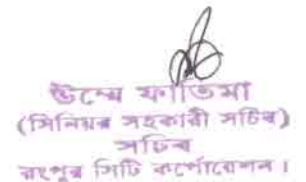 উম্মে ফাতিমা
(সিনিয়র সহকারী সচিব)
সচিব
রংপুর সিটি কর্পোরেশন।